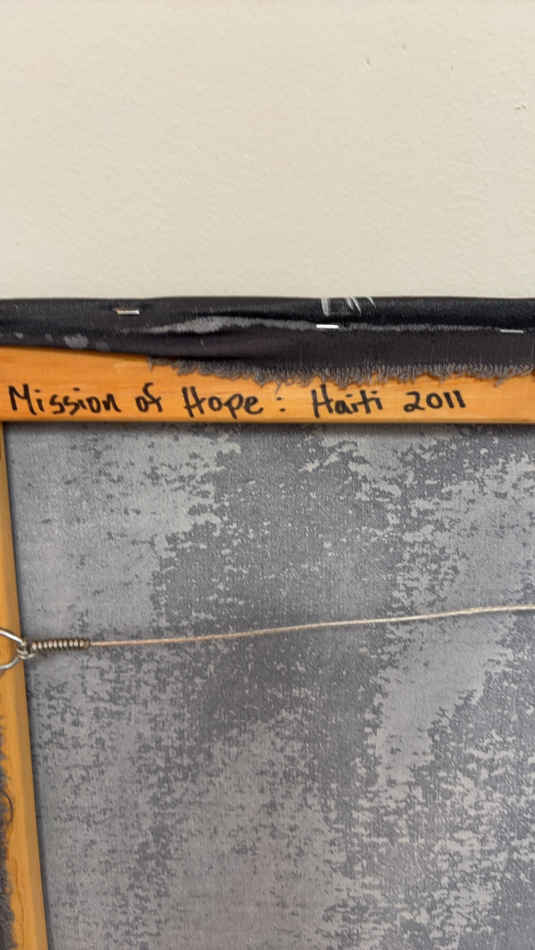 Mission of Hope: Haiti 2011